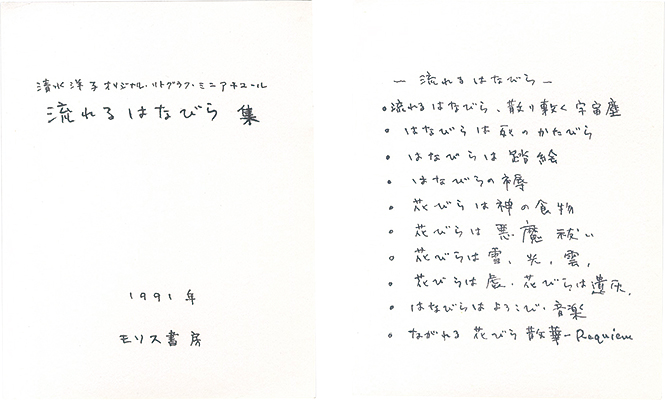 清水洋子オリジナル・リトグラフ・ミニアチュール
流れるはなびら 集
1991年
モリス書房
— 流れるはなびら —
•流れるはなびら、散り敷く宇宙塵
• はなびらは死のかたびら
• はなびらは踏絵
• はなびらの褥
• 花びらは神の食物
• 花びらは悪魔祓い
• 花びらは雪、光、雲、
• 花びらは虚・花びらは遺灰、
• はなびらはよろこび・音楽
• ながれる 花びら 散華-Requiem